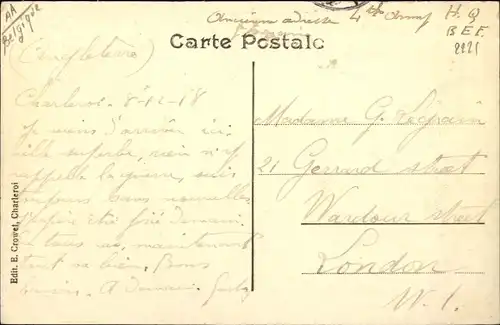 AA
Belgique
Ancienne adresse 4th Army H.Q
B E F.
Carte Postale
(Angleterre)
Charleroi - 8-12-18
Je viens d'arriver ici,
ville superbe, rien n'y
rappelle la guerre, suis
toujours sans nouvelles
J'espère être fixé demain.
tout va bien. Bons
A demain.
Madame G.
21 Gerrard street
Wardour street
London
W. 1.
Edit. E. Crowet, Charleroi